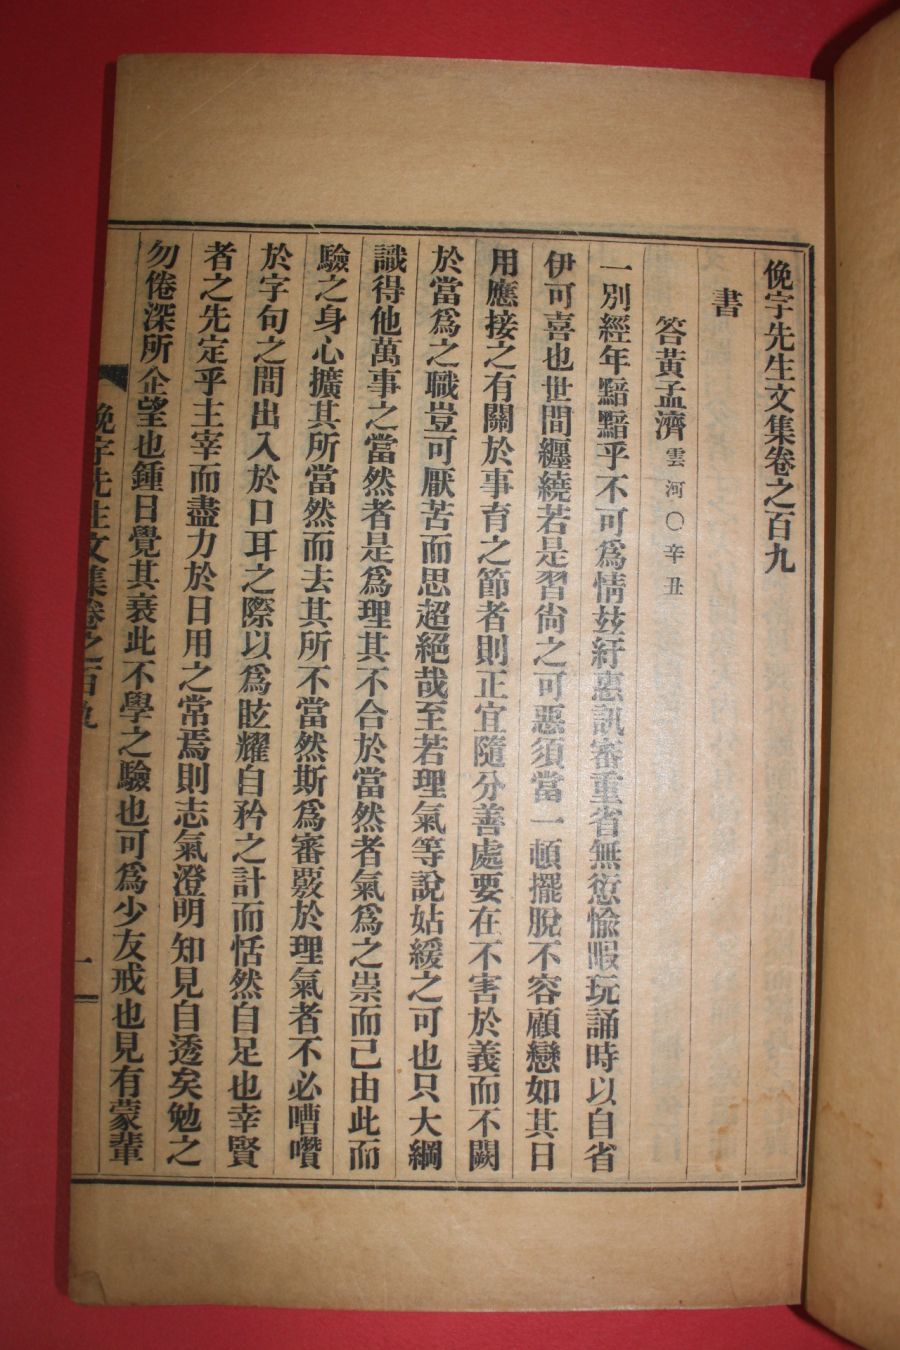 俛宇先生文集卷之百九
書
答黃孟濟雲河〇辛丑
一別經年黯黯乎不可爲情玆紆惠訊審重省無愆愉暇玩誦時以自省
伊可喜也世間纏繞若是習尙之可惡須當一頓擺脫不容顧戀如其日
用應接之有關於事育之節者則正宜隨分善處要在不害於義而不闕
於當爲之職豈可厭苦而思超絕哉至若理氣等說姑緩之可也只大綱
識得他萬事之當然者是爲理其不合於當然者氣爲之祟而己由此而
驗之身心擴其所當然而去其所不當然斯爲審覈於理氣者不必嘈囋
於字句之間出入於口耳之際以爲眩耀自矜之計而恬然自足也幸賢
者之先定乎主宰而盡力於日用之常焉則志氣澄明知見自透矣勉之
勿倦深所企望也鍾日覺其衰此不學之驗也可爲少友戒也見有蒙輩
俛宇先生文集卷之百九
一